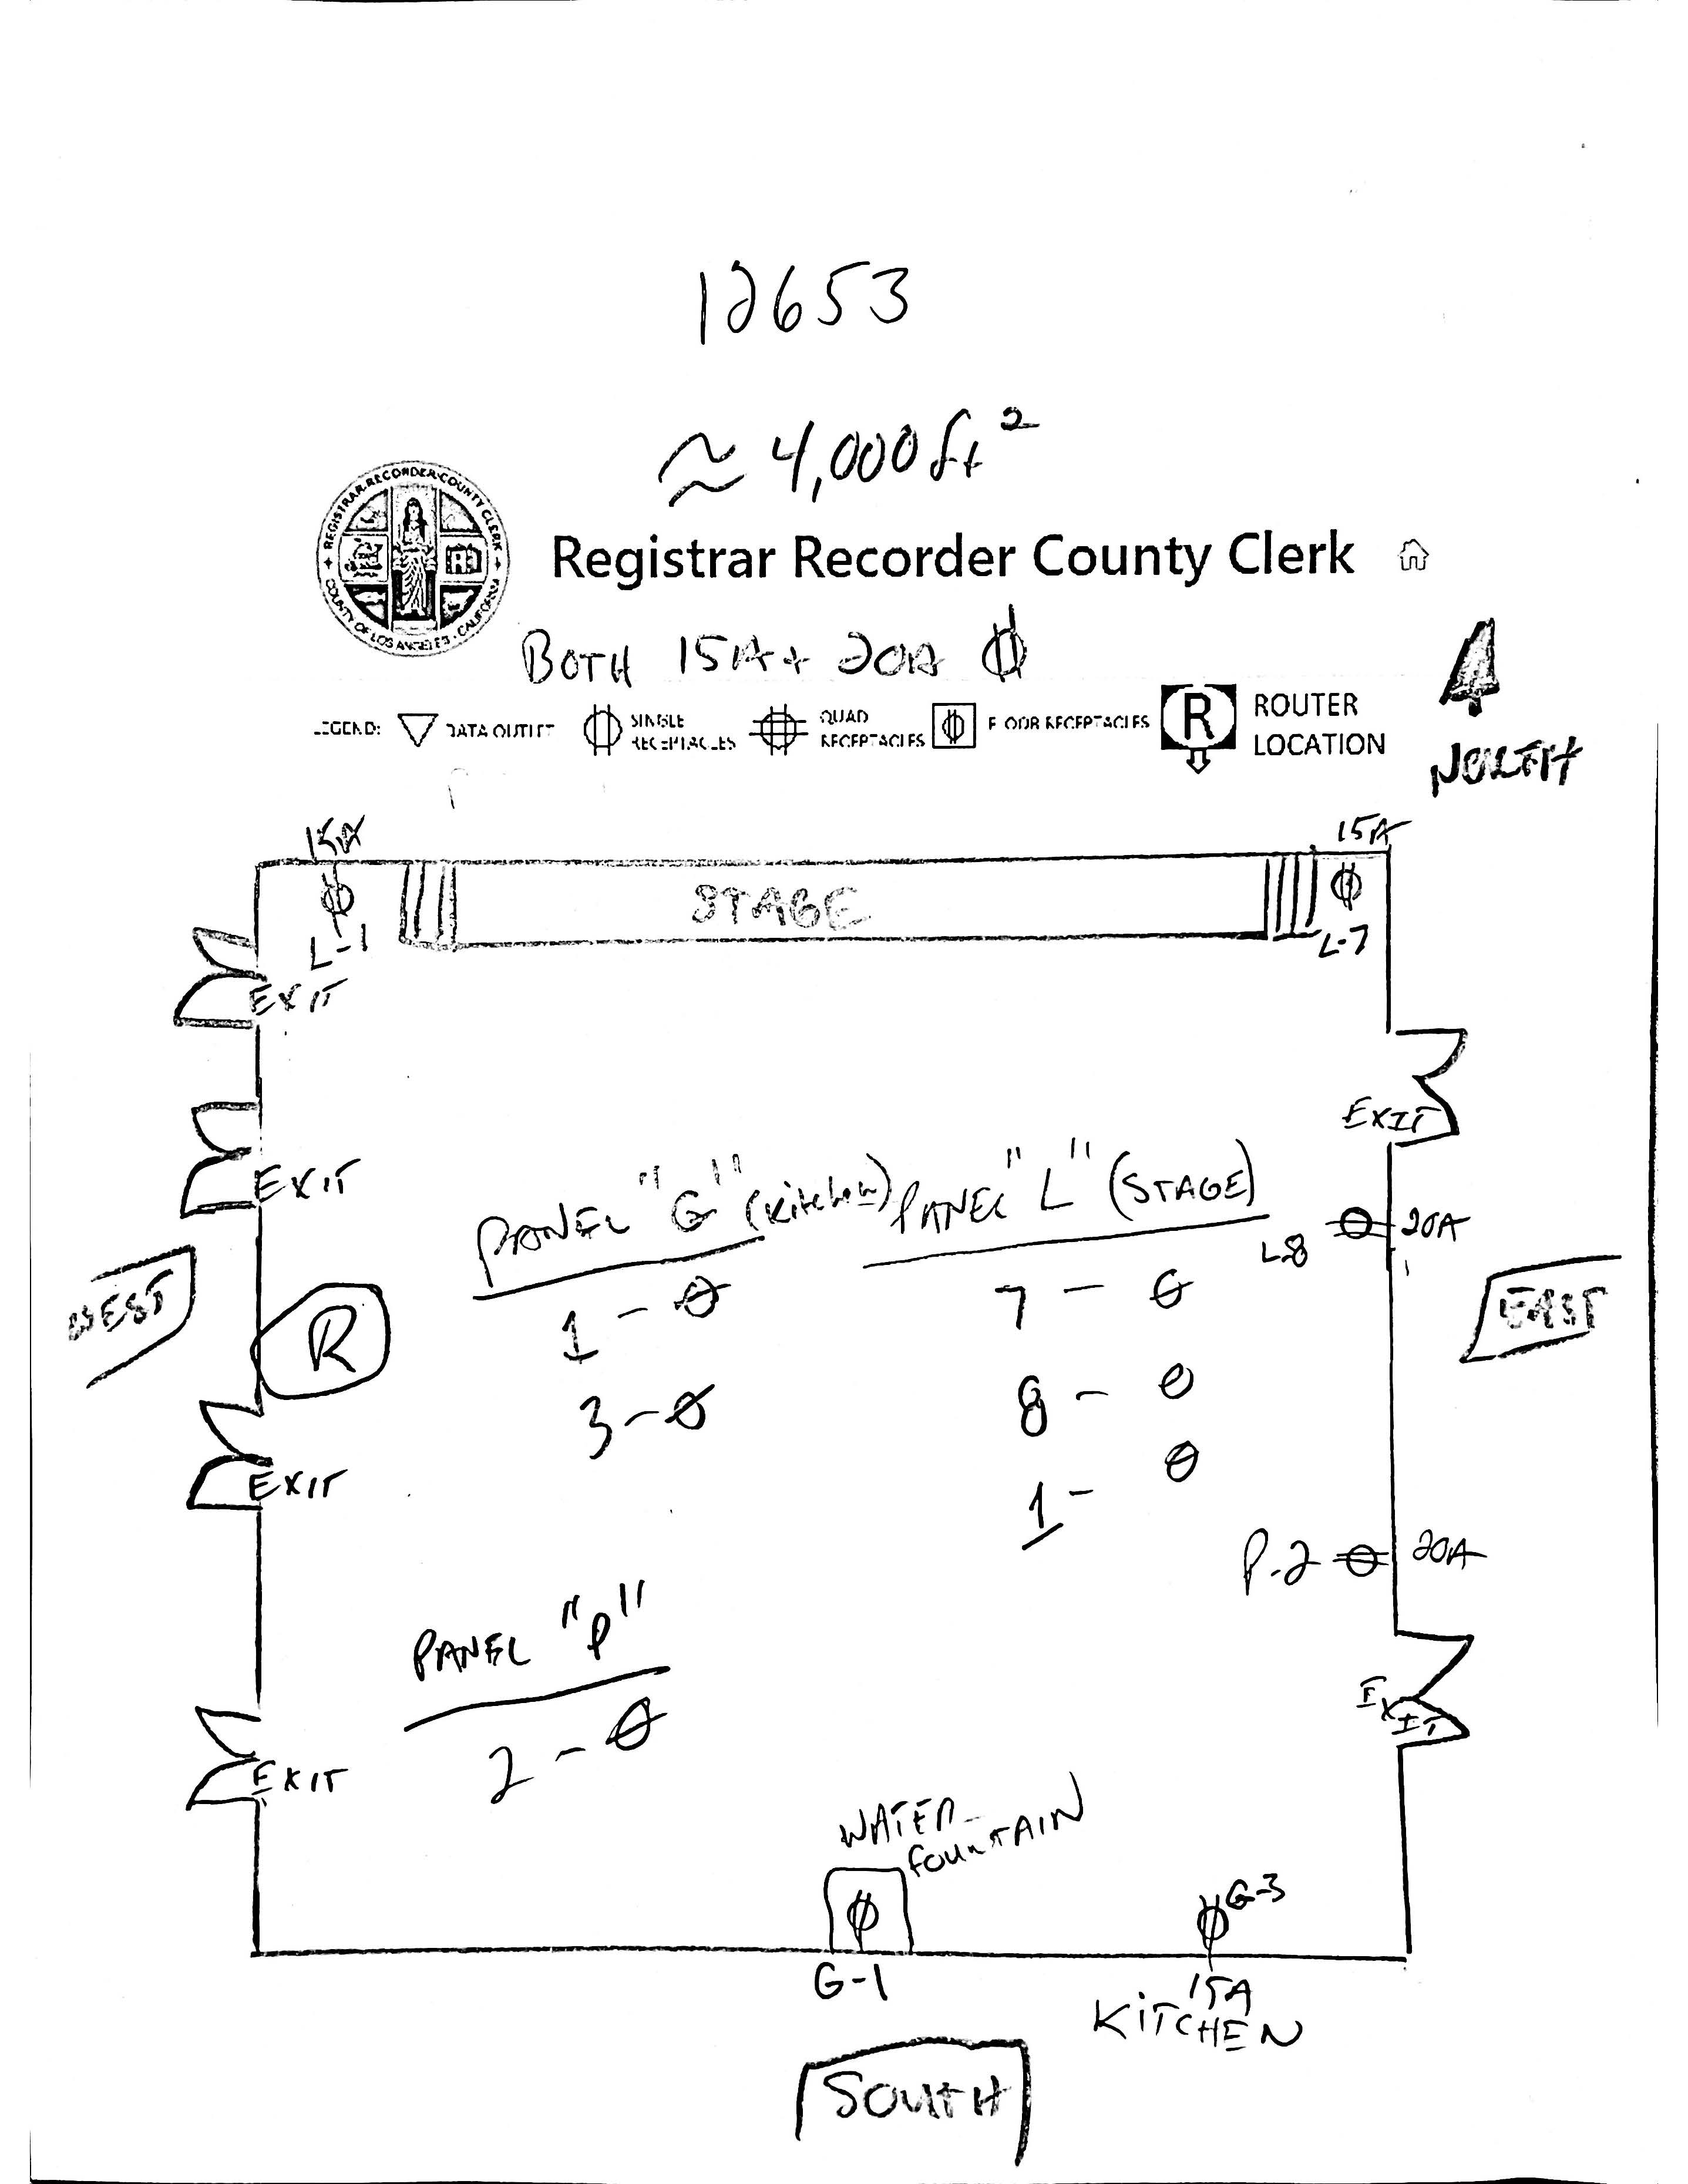 12653
≈ 4,000 ft²
REGISTRAR-RECORDER/COUNTY CLERK
COUNTY OF LOS ANGELES · CALIFORNIA
Registrar Recorder County Clerk
BOTH 15A + 20A
LEGEND: DATA OUTLET SINGLE RECEPTACLES QUAD RECEPTACLES FLOOR RECEPTACLES R ROUTER LOCATION
NORTH
15A
15A
STAGE
L-1
L-7
EXIT
EXIT
EXIT
PANEL "G" (Kitchen)
PANEL "L" (STAGE)
L-8
20A
WEST
R
EAST
1 -
7 -
3 -
8 -
1 -
EXIT
P-2
20A
PANEL "P"
2 -
EXIT
EXIT
WATER
FOUNTAIN
G-3
G-1
15A
KITCHEN
SOUTH